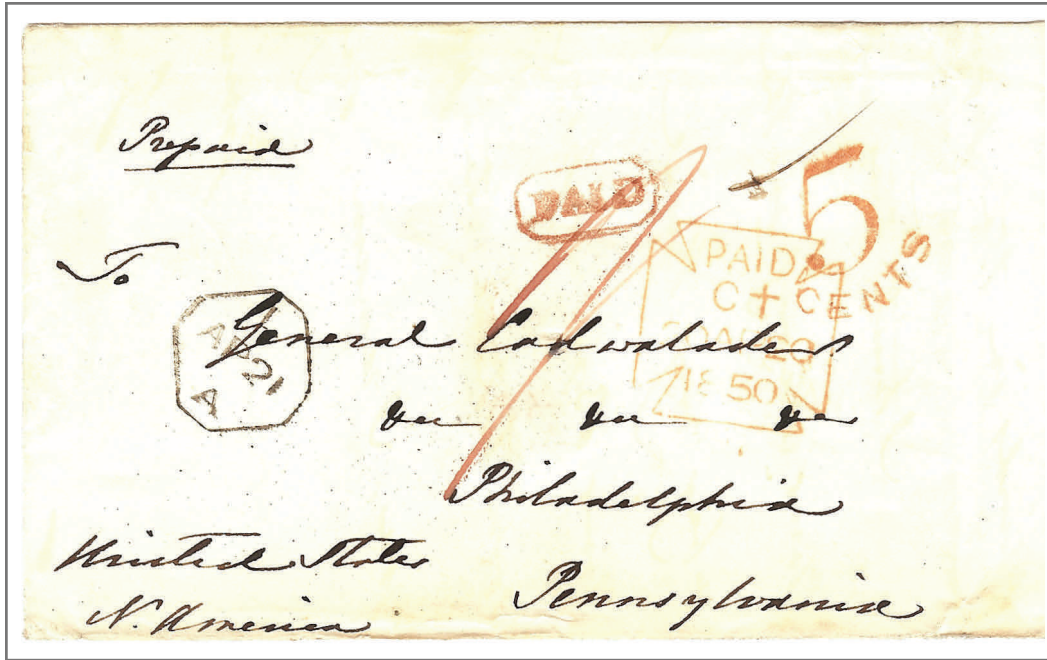 Prepaid
PAID
5
CENTS
To
PAID
C+
20 20
1850
A
21
A
General Cadwalader
Philadelphia
United States
Pennsylvania
N. America